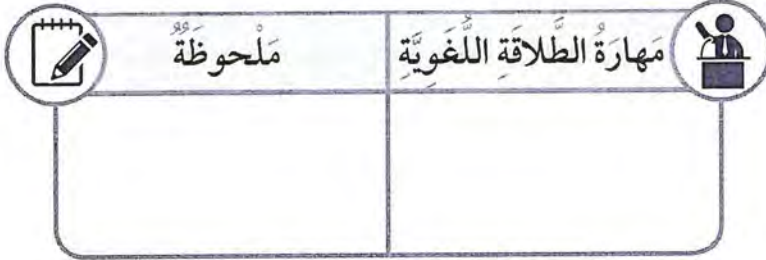 مَهارَةُ الطَّلاقَةِ اللُّغَوِيَّةِ
مَلْحوظَةٌ